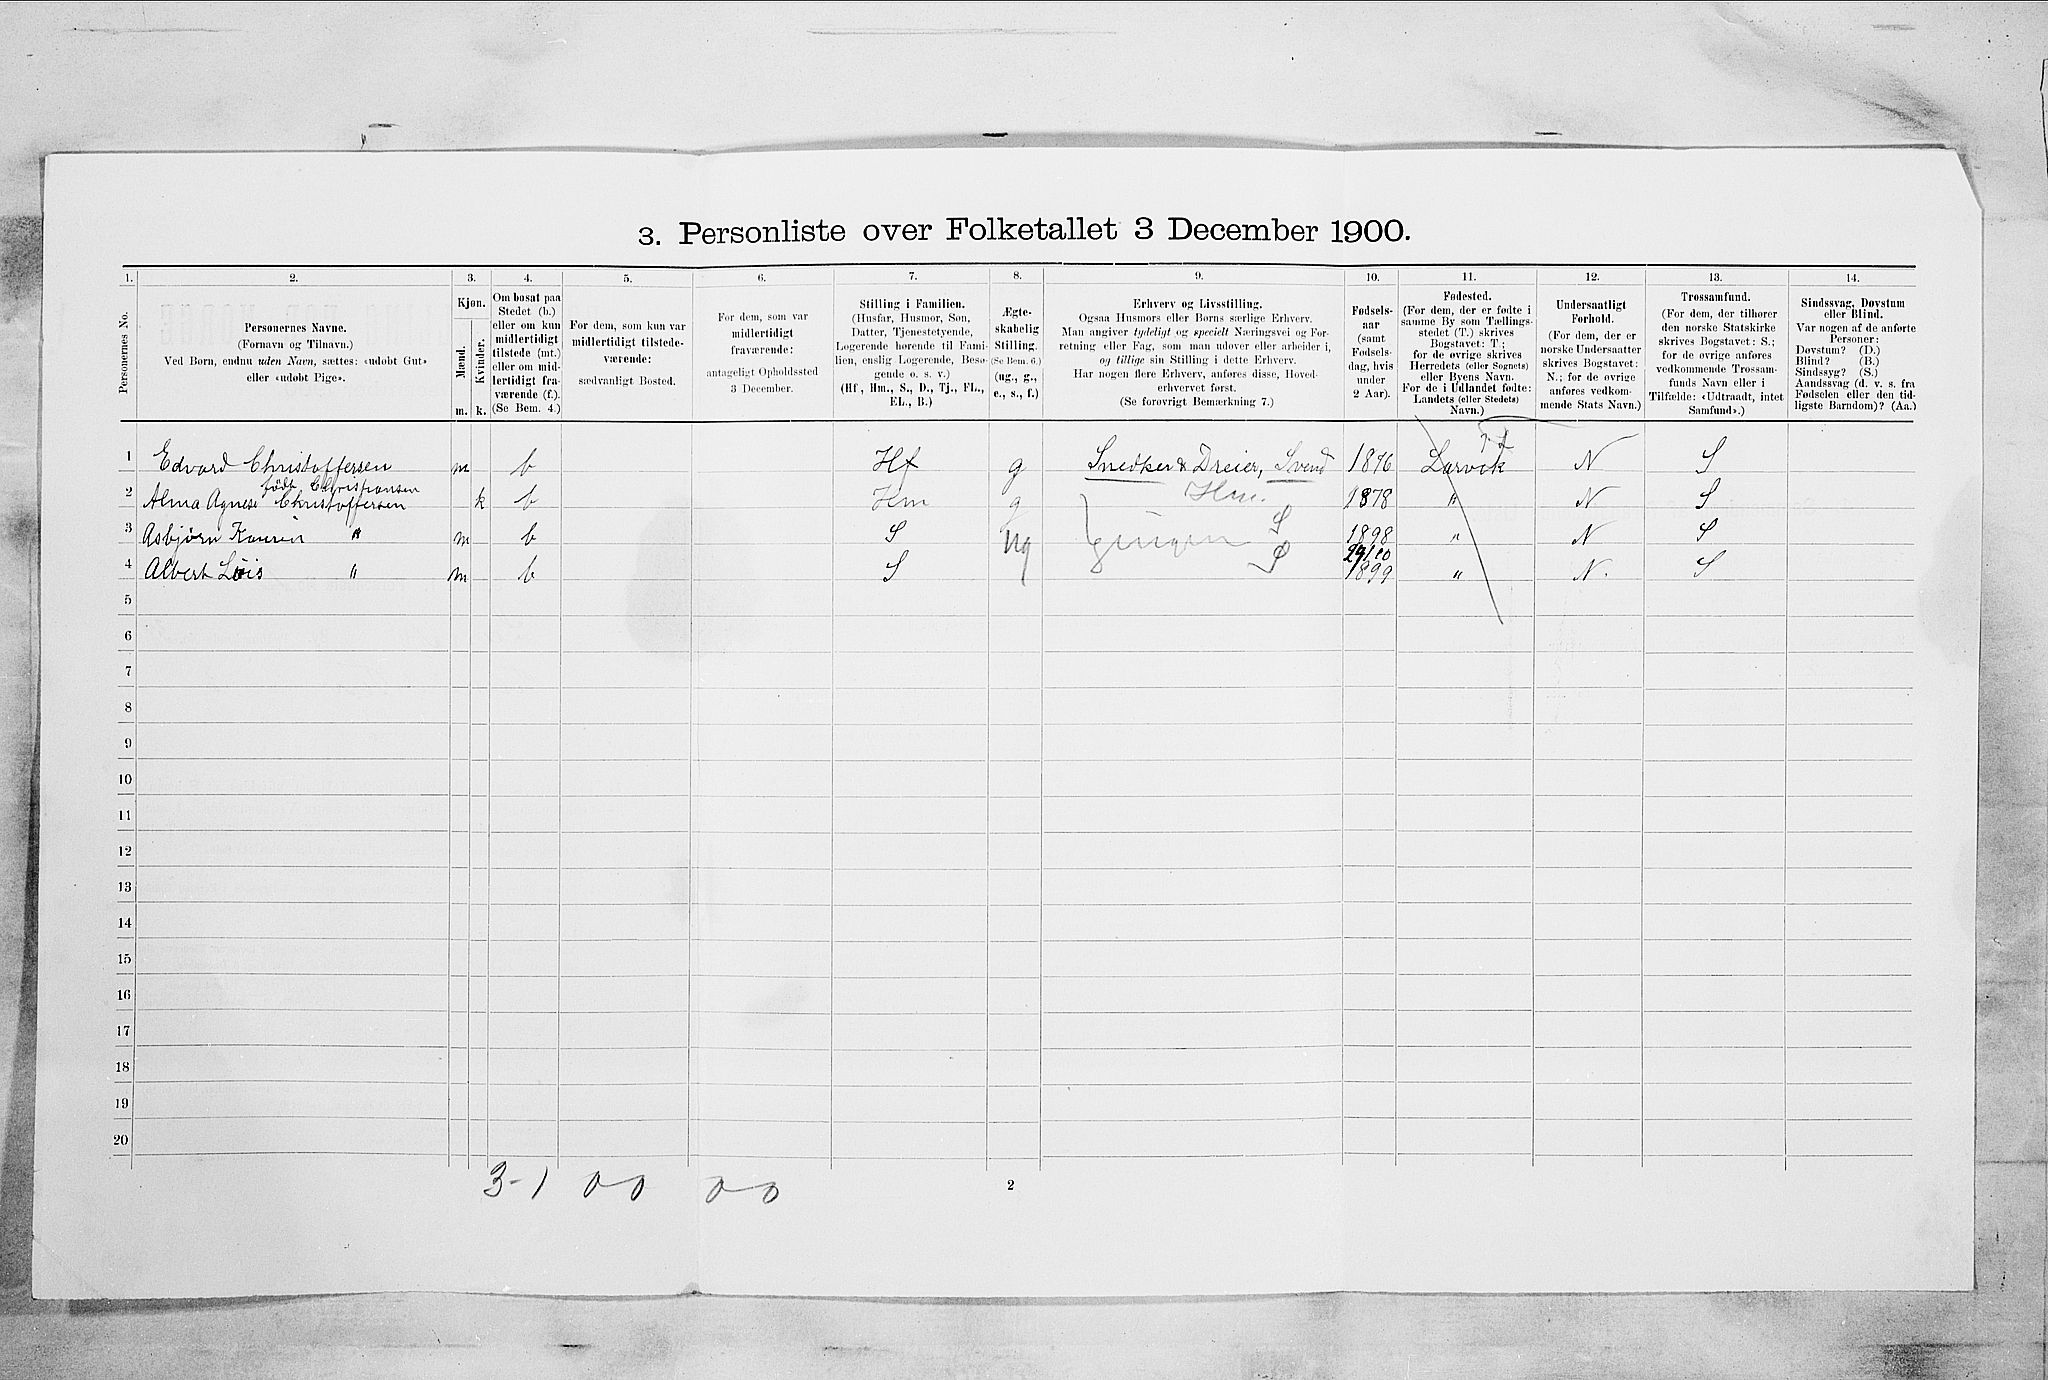 3. Personliste over Folketallet 3 December 1900.
1. 2. 3. 4. 5. 6. 7. 8. 9. 10. 11. 12. 13. 14.
Personernes No.
Personernes Navne.
(Fornavn og Tilnavn.)
Ved Børn, endnu uden Navn, sættes: «udøbt Gut»
eller «udøbt Pige».
Kjøn.
Mænd.
Kvinder.
m. k.
Om bosat paa
Stedet (b.)
eller om kun
midlertidigt
tilstede (mt.)
eller om mid-
lertidigt fra-
værende (f.).
(Se Bem. 4.)
For dem, som kun var
midlertidigt tilstede-
værende:
sædvanligt Bosted.
For dem, som var
midlertidigt
fraværende:
antageligt Opholdssted
3 December.
Stilling i Familien.
(Husfar, Husmor, Søn,
Datter, Tjenestetyende,
Logerende hørende til Fami-
lien, enslig Logerende, Besø-
gende o. s. v.)
(Hf., Hm., S., D., Tj., FL.,
EL., B.)
Ægte-
skabelig
Stilling.
(Se Bem. 6.)
(ug., g.,
e., s., f.)
Erhverv og Livsstilling.
Ogsaa Husmors eller Børns særlige Erhverv.
Man angiver tydeligt og specielt Næringsvei og For-
retning eller Fag, som man udøver eller arbeider i,
og tillige sin Stilling i dette Erhverv.
Har nogen flere Erhverv, anføres disse, Hoved-
erhvervet først.
(Se forøvrigt Bemærkning 7.)
Fødsels-
aar
(samt
Fødsels-
dag, hvis
under
2 Aar).
Fødested.
(For dem, der er fødte i
samme By som Tællings-
stedet (T.) skrives
Bogstavet: T.;
for de øvrige skrives
Herredets (eller Sognets)
eller Byens Navn.
For de i Udlandet fødte:
Landets (eller Stedets)
Navn.)
Undersaatligt
Forhold.
(For dem, der er
norske Undersaatter
skrives Bogstavet:
N.; for de øvrige
anføres vedkom-
mende Stats Navn.)
Trossamfund.
(For dem, der tilhører
den norske Statskirke
skrives Bogstavet: S.;
for de øvrige anføres
vedkommende Trossam-
funds Navn eller i
Tilfælde: «Udtraadt, intet
Samfund».)
Sindssvag, Døvstum
eller Blind.
Var nogen af de anførte
Personer:
Døvstum? (D.)
Blind? (B.)
Sindssyg? (S.)
Aandssvag (d. v. s. fra
Fødselen eller den tid-
ligste Barndom)? (Aa.)
1 Edvard Christoffersen m b Hf g Snedker & Dreier, Svend 1876 Larvik N S
født Christiansen
2 Alma Agnese Christoffersen k b Hm g Hm. 1878 " N S
3 Asbjørn " m b S ug S 1898 " N S
29/10
4 Albert Lois " m b S S 1899 " N. S
5
6
7
8
9
10
11
12
13
14
15
16
17
18
19
20
3-1 0 0 0 0
2